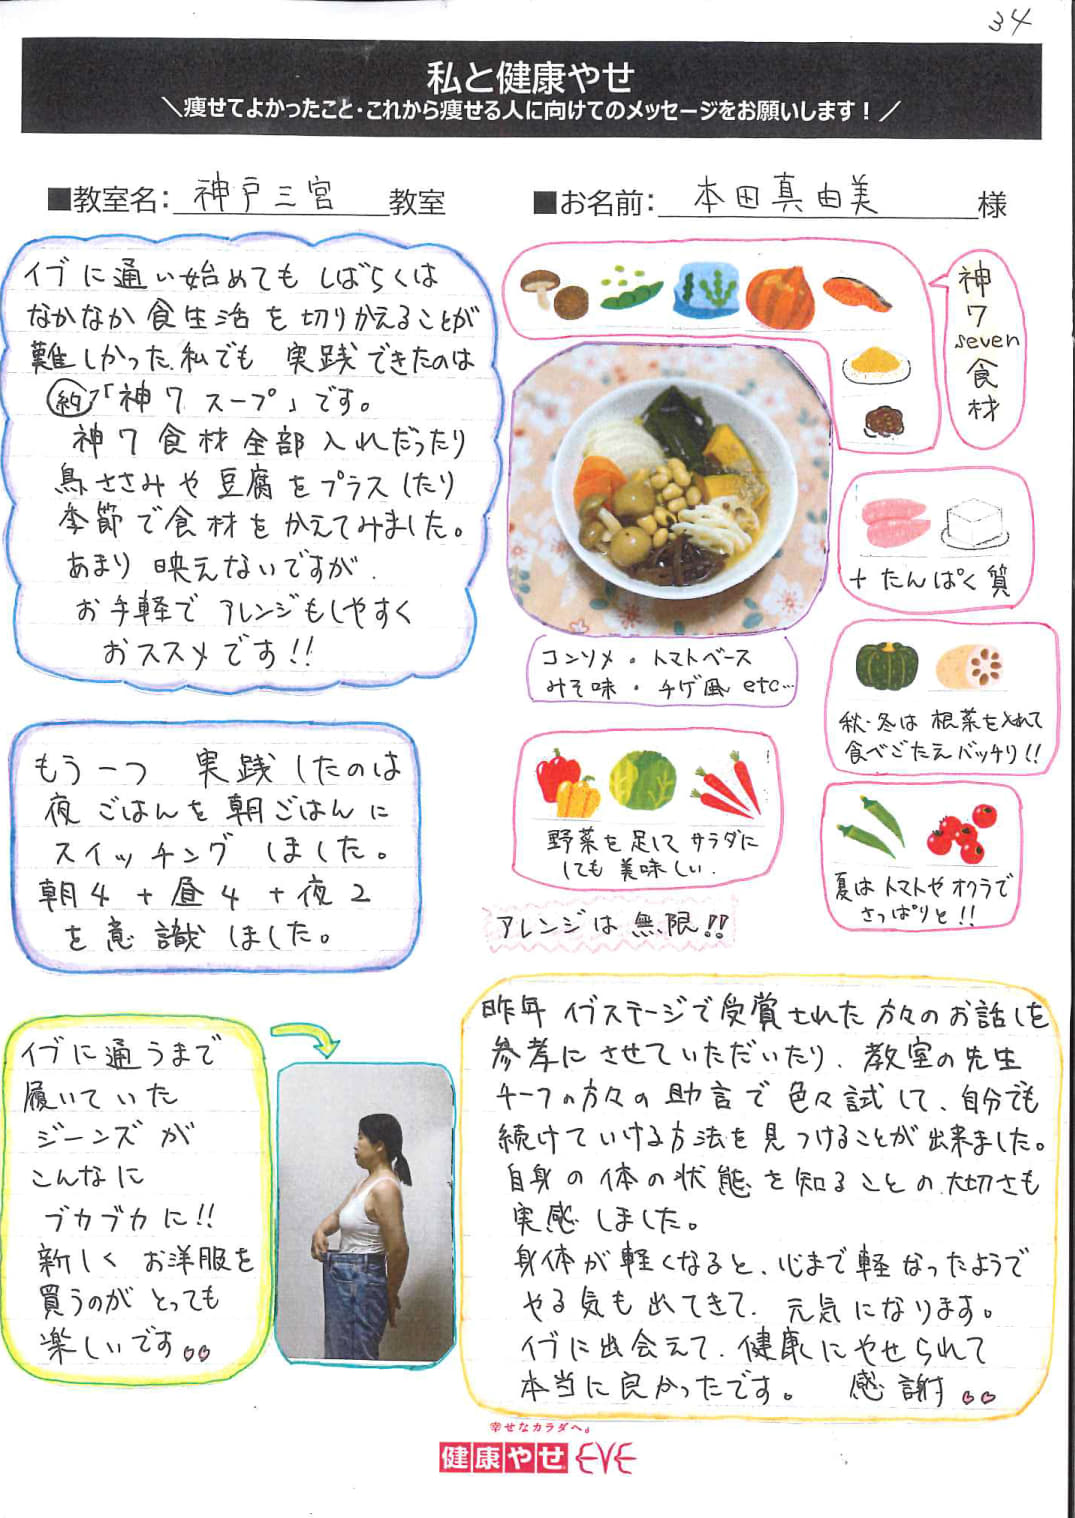 34
私と健康やせ
＼痩せてよかったこと・これから痩せる人に向けてのメッセージをお願いします！／
■教室名：神戸三宮教室
■お名前：本田真由美様
イブに通い始めても しばらくは
なかなか食生活を切りかえることが
難しかった私でも 実践できたのは
㊙「神7スープ」です。
神7食材全部入れだったり
鳥ささみや豆腐をプラスしたり
季節で食材をかえてみました。
あまり映えないですが、
お手軽でアレンジもしやすく
おススメです!!
神
7
seven
食
材
コンソメ・トマトベース
みそ味・チゲ風 etc…
+たんぱく質
秋・冬は根菜を入れて
食べごたえバッチリ!!
野菜を足してサラダに
しても美味しい.
夏はトマトやオクラで
さっぱりと!!
アレンジは無限!!
もう一つ 実践したのは
夜ごはんを朝ごはんに
スイッチング しました。
朝4+昼4+夜2
を意識しました。
イブに通うまで
履いていた
ジーンズが
こんなに
ブカブカに!!
新しくお洋服を
買うのがとっても
楽しいです
昨年イブステージで受賞された方々のお話しを
参考にさせていただいたり、教室の先生
チーフの方々の助言で色々試して、自分でも
続けていける方法を見つけることが出来ました。
自身の体の状態を知ることの大切さも
実感しました。
身体が軽くなると、心まで軽なったようで
やる気も出てきて、元気になります。
イブに出会えて、健康にやせられて
本当に良かったです。 感謝
幸せなカラダへ。
健康やせ EVE